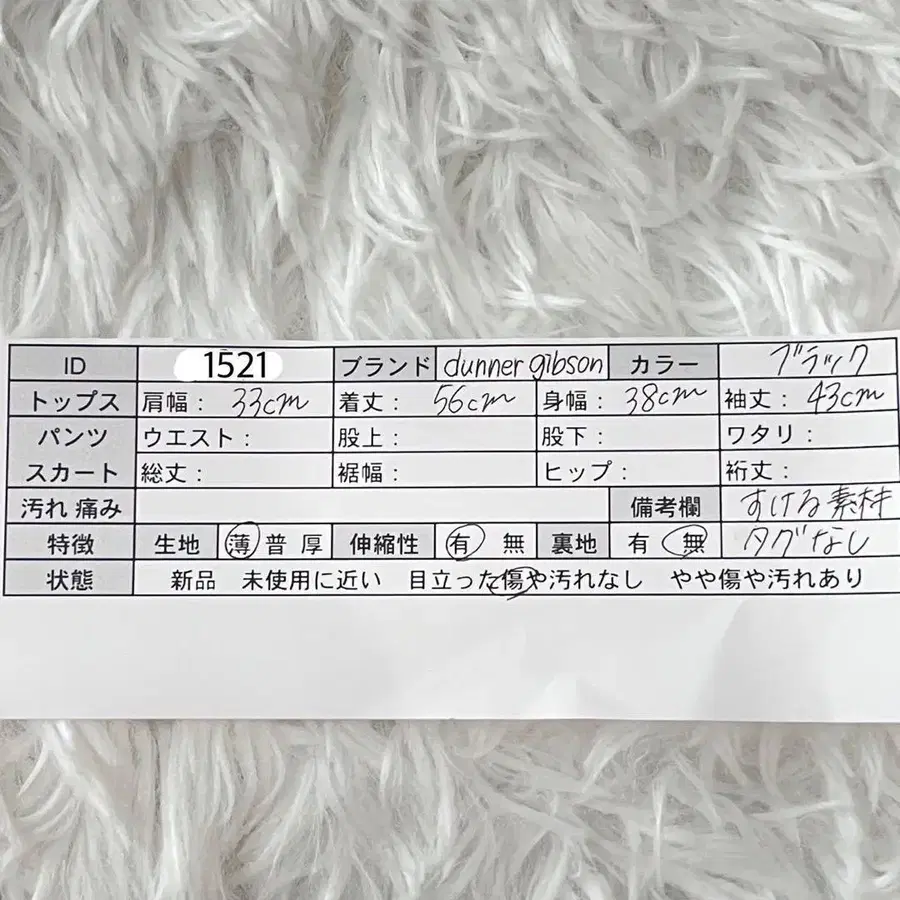 ID 1521 ブランド dunner gibson カラー ブラック
トップス 肩幅： 33cm 着丈： 56cm 身幅： 38cm 袖丈： 43cm
パンツ ウエスト： 股上： 股下： ワタリ：
スカート 総丈： 裾幅： ヒップ： 裄丈：
汚れ 痛み 備考欄 すける素材
特徴 生地 薄 普 厚 伸縮性 有 無 裏地 有 無 タグなし
状態 新品 未使用に近い 目立った傷や汚れなし やや傷や汚れあり